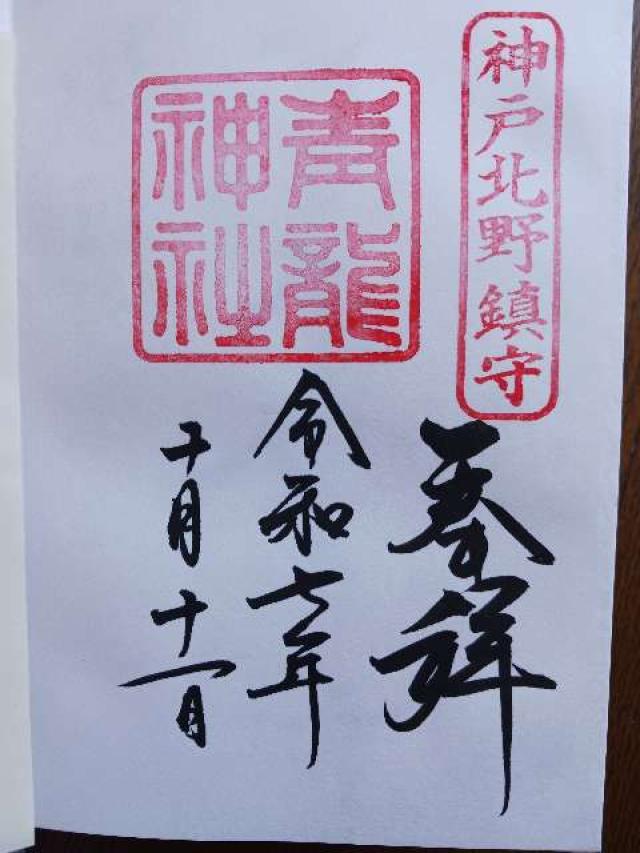 神戸北野鎮守
奉拝
青龍
神社
令和七年
十月十一日